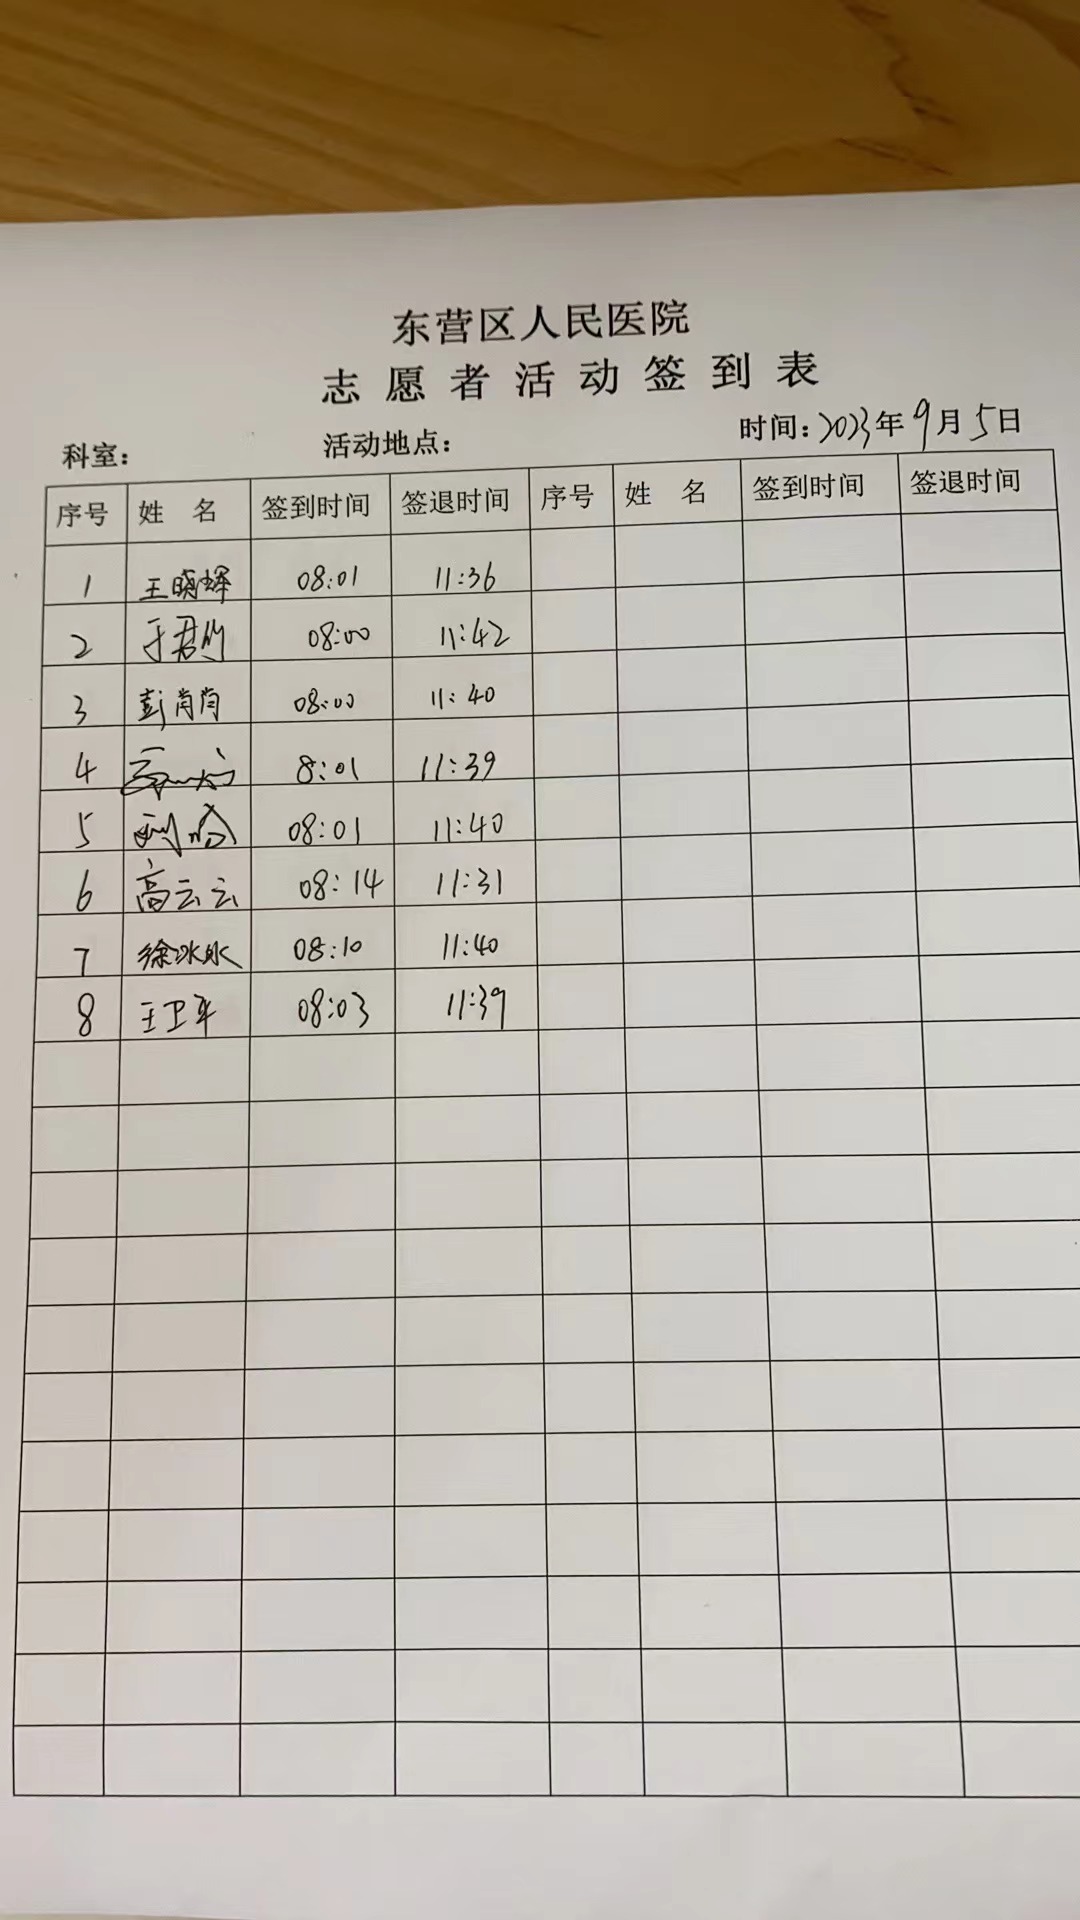 东营区人民医院
志愿者活动签到表
科室： 活动地点： 时间：2023年9月5日
序号 姓名 签到时间 签退时间 序号 姓名 签到时间 签退时间
1 王晓辉 08:01 11:36
2 于君 08:00 11:42
3 彭肖肖 08:00 11:40
4 8:01 11:39
5 08:01 11:40
6 高云云 08:14 11:31
7 徐冰冰 08:10 11:40
8 王卫平 08:03 11:39